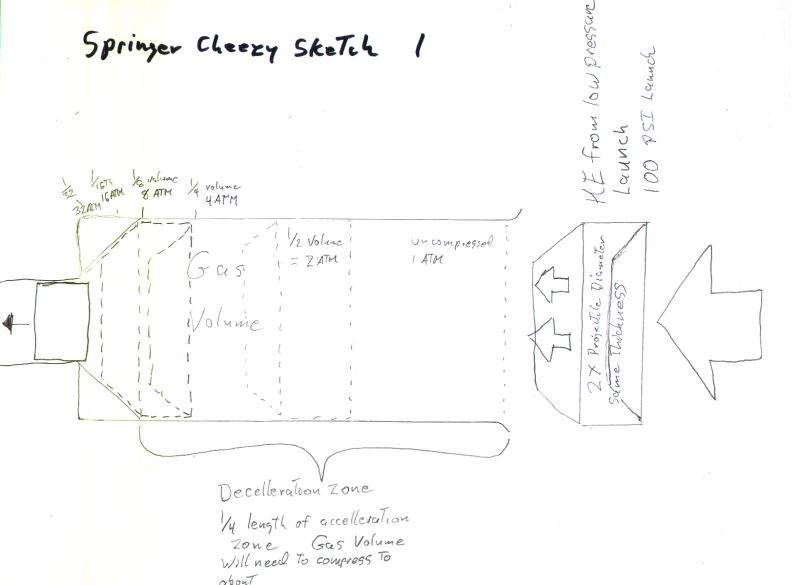 Springer Cheezy Sketch 1
KE from low pressure
Launch
100 PSI Launch
1/32
32ATM
1/16th
16ATM
1/8 volume
8 ATM
1/4 volume
4 ATM
Gas
Volume
1/2 Volume
= 2 ATM
uncompressed
1 ATM
2X Projectile Diameter
Same Thickness
Decelleration zone
1/4 length of accelleration
zone Gas Volume
will need to compress to
about